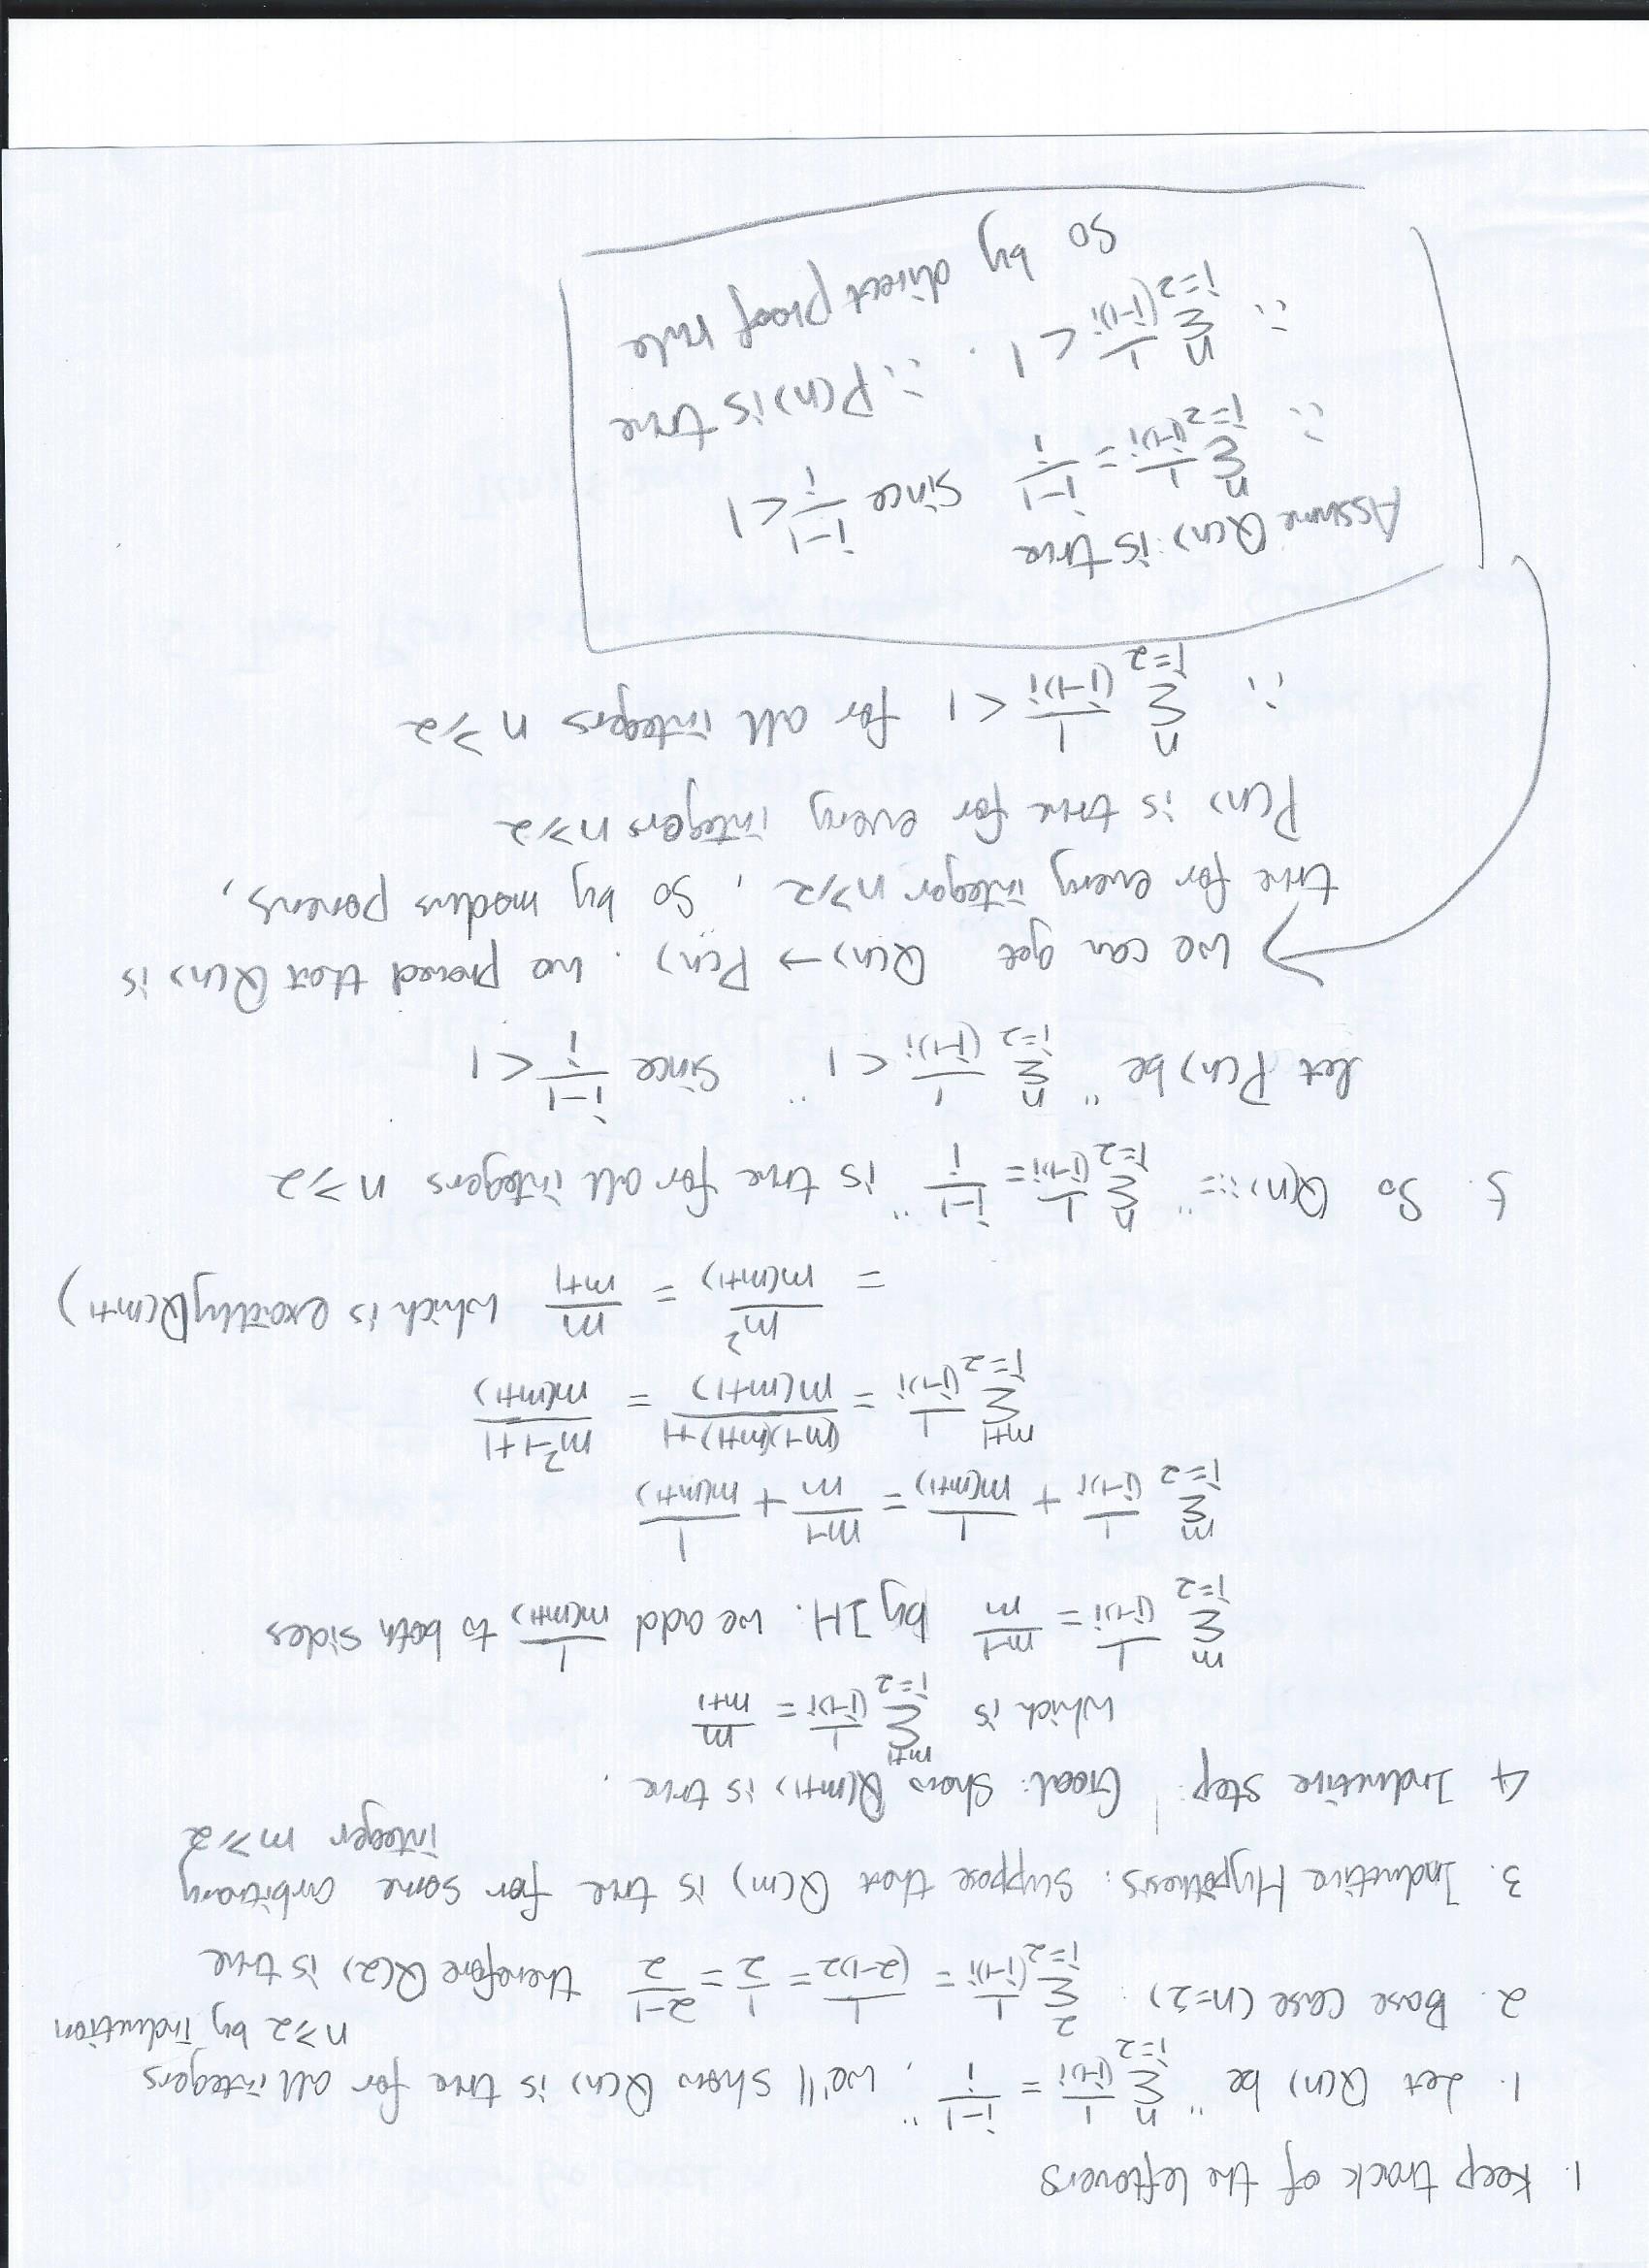 1. Keep track of the leftovers
1. Let Q(n) be " ∑_{i=2}^{n} 1/((i-1)i) = (i-1)/i ", we'll show Q(n) is true for all integers
n≥2 by induction
2. Base case (n=2): ∑_{i=2}^{2} 1/((i-1)i) = 1/((2-1)2) = 1/2 = (2-1)/2 therefore Q(2) is true
3. Inductive Hypothesis: suppose that Q(m) is true for some arbitrary
integer m≥2
4 Inductive step: Goal: show Q(m+1) is true.
which is ∑_{i=2}^{m+1} 1/((i-1)i) = m/(m+1)
∑_{i=2}^{m} 1/((i-1)i) = (m-1)/m by IH. we add 1/(m(m+1)) to both sides
∑_{i=2}^{m} 1/((i-1)i) + 1/(m(m+1)) = (m-1)/m + 1/(m(m+1))
∑_{i=2}^{m+1} 1/((i-1)i) = ((m-1)(m+1)+1)/(m(m+1)) = (m²-1+1)/(m(m+1))
= m²/(m(m+1)) = m/(m+1) which is exactly Q(m+1)
5. So Q(n) ::= " ∑_{i=2}^{n} 1/((i-1)i) = (i-1)/i " is true for all integers n≥2
let P(n) be " ∑_{i=2}^{n} 1/((i-1)i) < 1 " since (i-1)/i < 1
we can get Q(n) → P(n). we proved that Q(n) is
true for every integer n≥2, so by modus ponens,
P(n) is true for every integers n≥2
∴ ∑_{i=2}^{n} 1/((i-1)i) < 1 for all integers n≥2
Assume Q(n) is true
∴ ∑_{i=2}^{n} 1/((i-1)i) = (i-1)/i since (i-1)/i < 1
∴ ∑_{i=2}^{n} 1/((i-1)i) < 1. ∴ P(n) is true
so by direct proof rule